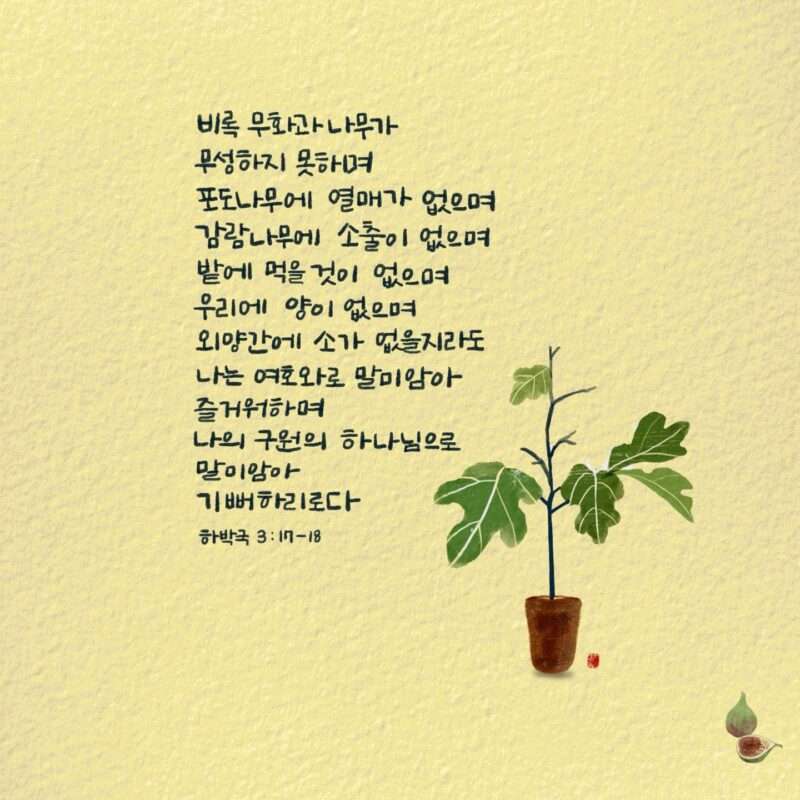 비록 무화과 나무가
무성하지 못하며
포도나무에 열매가 없으며
감람나무에 소출이 없으며
밭에 먹을 것이 없으며
우리에 양이 없으며
외양간에 소가 없을지라도
나는 여호와로 말미암아
즐거워하며
나의 구원의 하나님으로
말미암아
기뻐하리로다
하박국 3:17-18